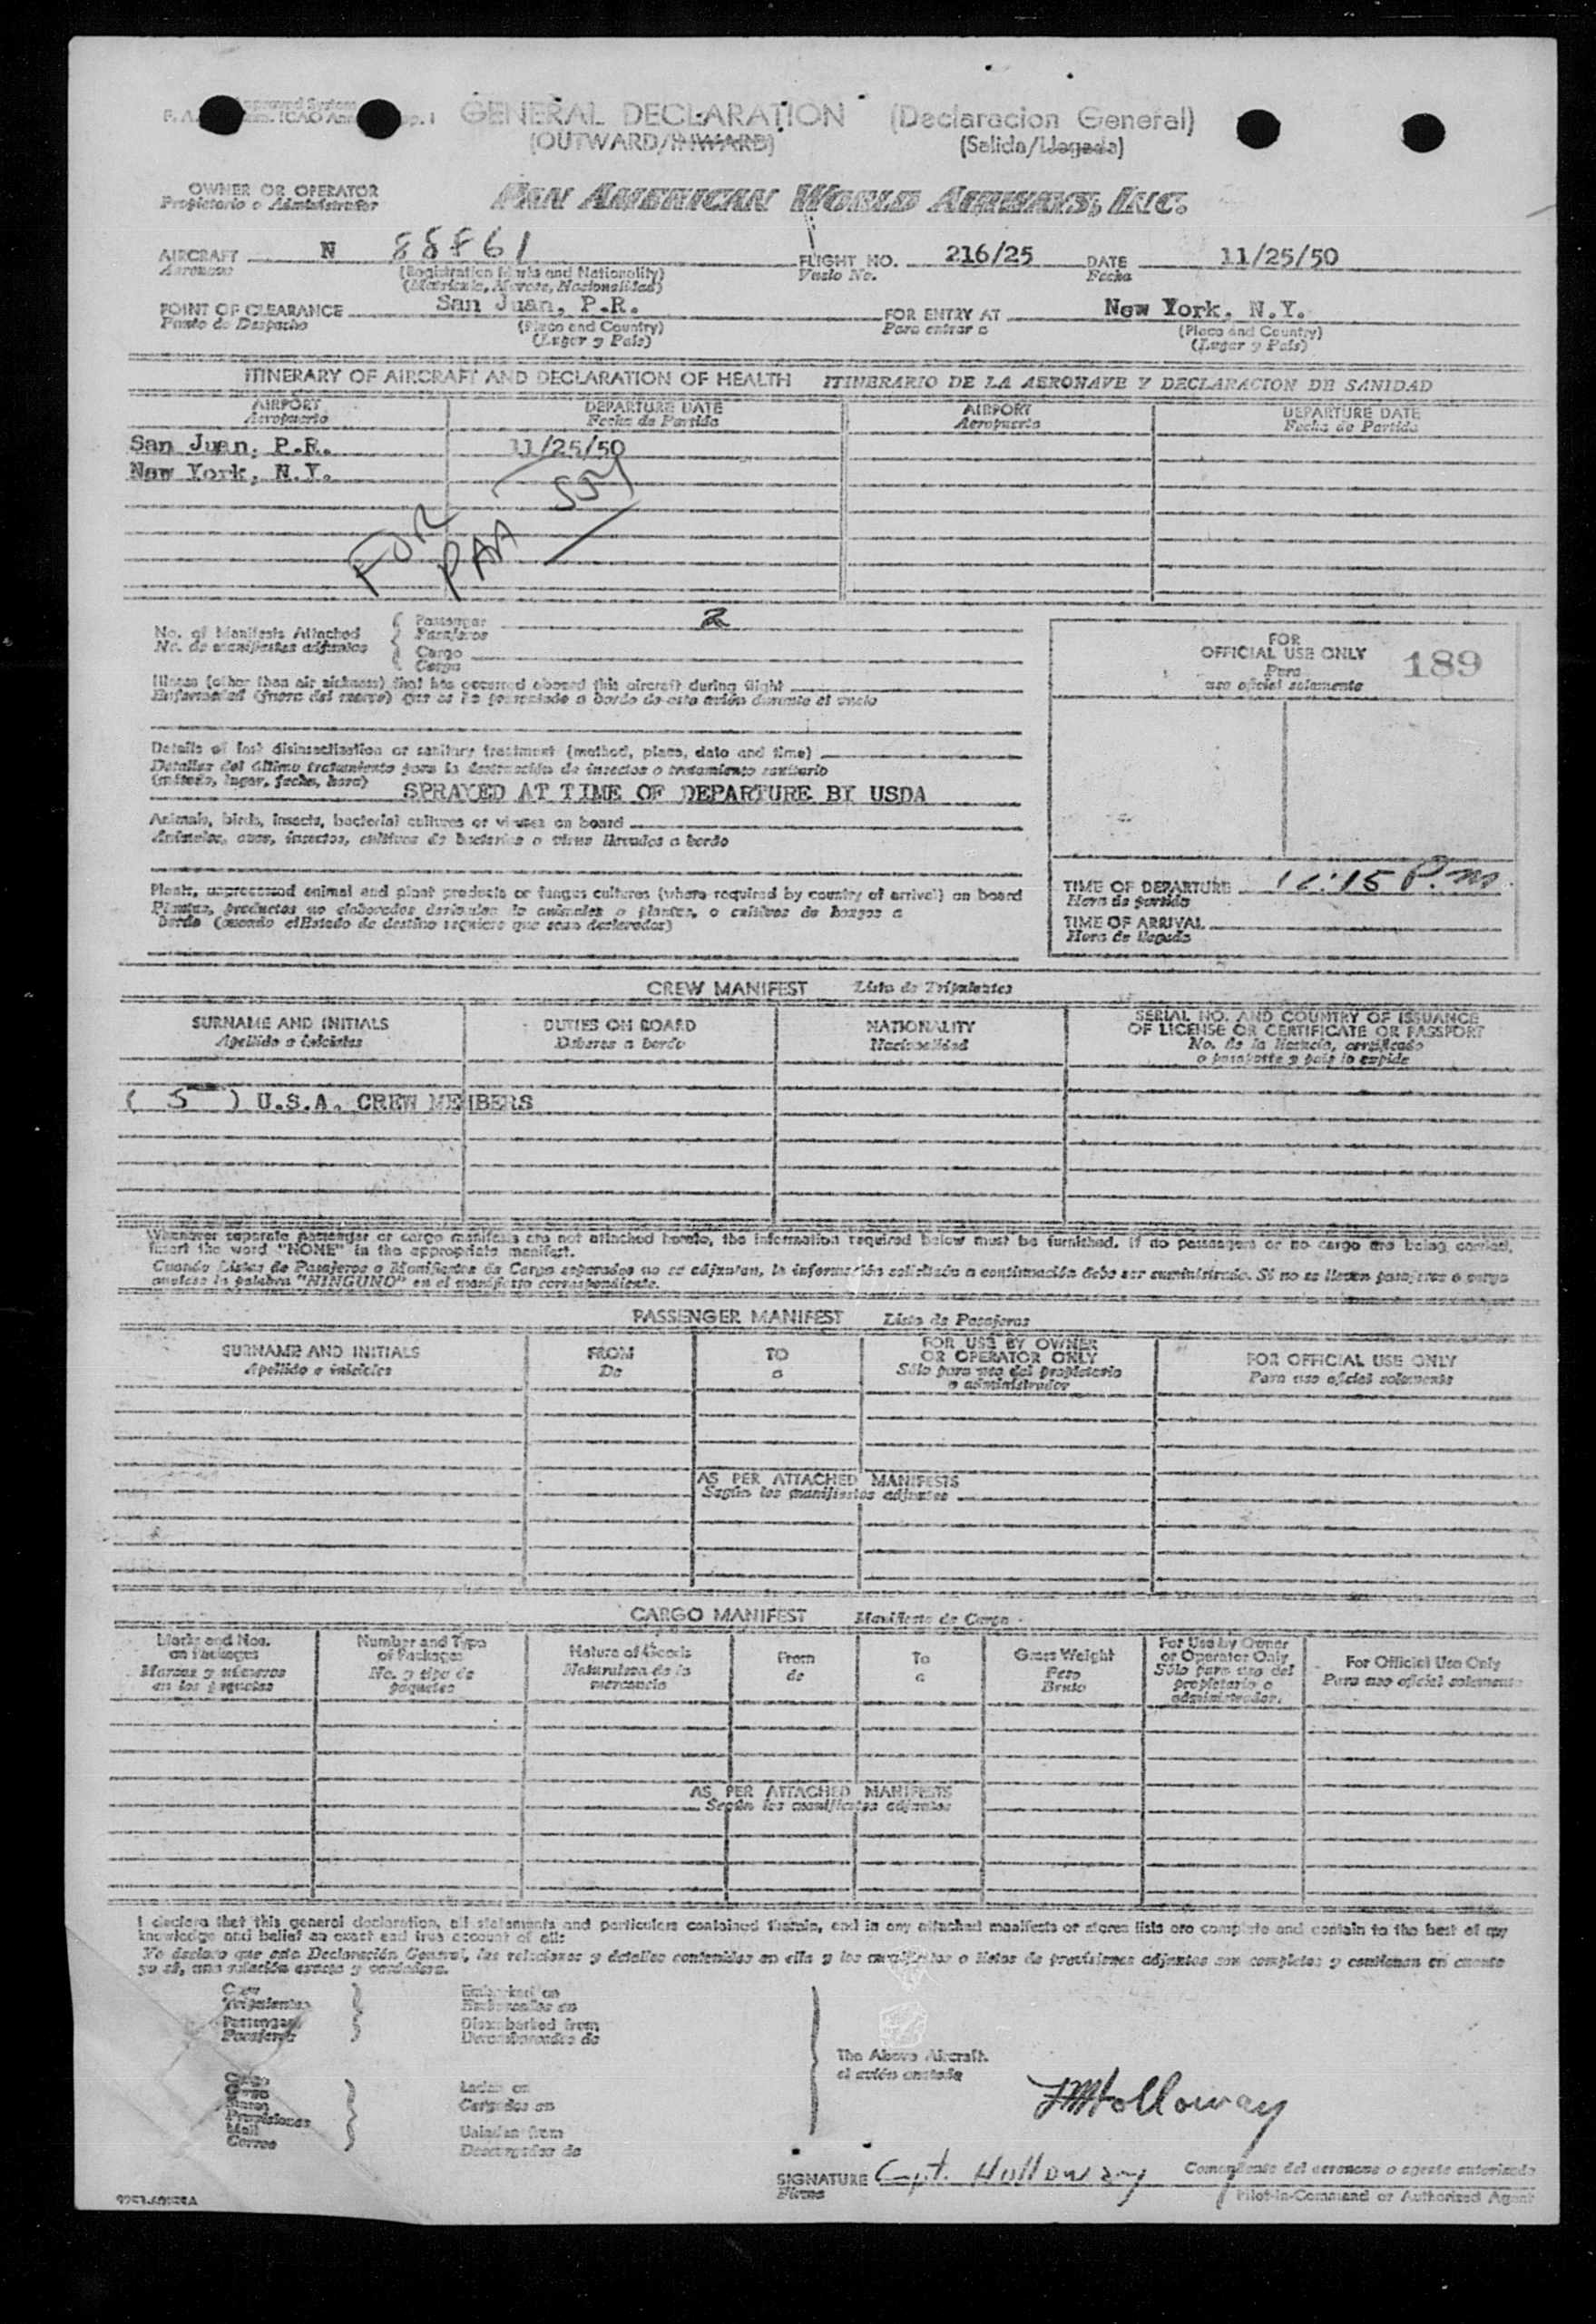 GENERAL DECLARATION (Declaracion General)
(OUTWARD/INWARD) (Salida/Llegada)
OWNER OR OPERATOR
Propietario o Administrador
PAN AMERICAN WORLD AIRWAYS, INC.
AIRCRAFT N 88861 FLIGHT NO. 216/25 DATE 11/25/50
Aeronave (Registration Marks and Nationality) Vuelo No. Fecha
(Matricula, Marcas, Nacionalidad)
POINT OF CLEARANCE San Juan, P.R. FOR ENTRY AT New York, N.Y.
Punto de Despacho (Place and Country) Para entrar a (Place and Country)
(Lugar y Pais) (Lugar y Pais)
ITINERARY OF AIRCRAFT AND DECLARATION OF HEALTH ITINERARIO DE LA AERONAVE Y DECLARACION DE SANIDAD
AIRPORT DEPARTURE DATE AIRPORT DEPARTURE DATE
Aeropuerto Fecha de Partida Aeropuerto Fecha de Partida
San Juan, P.R. 11/25/50
New York, N.Y.
FOR
PAA
No. of Manifests Attached Passenger 2
No. de manifiestos adjuntos Pasajeros
Cargo
Carga
FOR
OFFICIAL USE ONLY 189
Para
uso oficial solamente
Illness (other than air sickness) that has occurred aboard this aircraft during flight
Enfermedad (fuera del mareo) que se ha presentado a bordo de este avión durante el vuelo
Details of last disinsectization or sanitary treatment (method, place, date and time)
Detalles del último tratamiento para la destrucción de insectos o tratamiento sanitario
(método, lugar, fecha, hora) SPRAYED AT TIME OF DEPARTURE BY USDA
Animals, birds, insects, bacterial cultures or viruses on board
Animales, aves, insectos, cultivos de bacterias o virus llevados a bordo
Plants, unprocessed animal and plant products or fungus cultures (where required by country of arrival) on board
Plantas, productos no elaborados derivados de animales o plantas, o cultivos de hongos a
bordo (cuando el Estado de destino requiere que sean declarados)
TIME OF DEPARTURE 12:15 P.m.
Hora de partida
TIME OF ARRIVAL
Hora de llegada
CREW MANIFEST Lista de Tripulantes
SURNAME AND INITIALS DUTIES ON BOARD NATIONALITY SERIAL NO. AND COUNTRY OF ISSUANCE
OF LICENSE OR CERTIFICATE OR PASSPORT
Apellido e iniciales Deberes a bordo Nacionalidad No. de la licencia, certificado
o pasaporte y país lo expide
( 5 ) U.S.A. CREW MEMBERS
Whenever separate passenger or cargo manifests are not attached hereto, the information required below must be furnished. If no passengers or no cargo are being carried,
insert the word "NONE" in the appropriate manifest.
Cuando Listas de Pasajeros o Manifiestos de Carga separados no se adjuntan, la información solicitada a continuación debe ser suministrada. Si no se llevan pasajeros o carga
anótese la palabra "NINGUNO" en el manifiesto correspondiente.
PASSENGER MANIFEST Lista de Pasajeros
SURNAME AND INITIALS FROM TO FOR USE BY OWNER
OR OPERATOR ONLY FOR OFFICIAL USE ONLY
Apellido e iniciales De a Sólo para uso del propietario
o administrador Para uso oficial solamente
AS PER ATTACHED MANIFESTS
Según los manifiestos adjuntos
CARGO MANIFEST Manifiesto de Carga
Marks and Nos.
on Packages
Marcas y números
en los paquetes
Number and Type
of Packages
No. y tipo de
paquetes
Nature of Goods
Naturaleza de la
mercancía
From
de
To
a
Gross Weight
Peso
Bruto
For Use by Owner
or Operator Only
Sólo para uso del
propietario o
administrador.
For Official Use Only
Para uso oficial solamente
AS PER ATTACHED MANIFESTS
Según los manifiestos adjuntos
I declare that this general declaration, all statements and particulars contained therein, and in any attached manifests or stores lists are complete and contain to the best of my
knowledge and belief an exact and true account of all:
Yo declaro que esta Declaración General, las relaciones y detalles contenidos en ella y los manifiestos o listas de provisiones adjuntos son completos y contienen en cuanto
yo sé, una relación exacta y verdadera.
Crew
Tripulantes
Passengers
Pasajeros
Embarked on
Embarcados en
Disembarked from
Desembarcados de
Cargo
Carga
Stores
Provisiones
Mail
Correo
Laden on
Cargados en
Unladen from
Descargados de
The Above Aircraft.
el avión anotado
JM Holloway
SIGNATURE Cpt. Holloway Comandante del aeronave o agente autorizado
Firma Pilot-in-Command or Authorized Agent